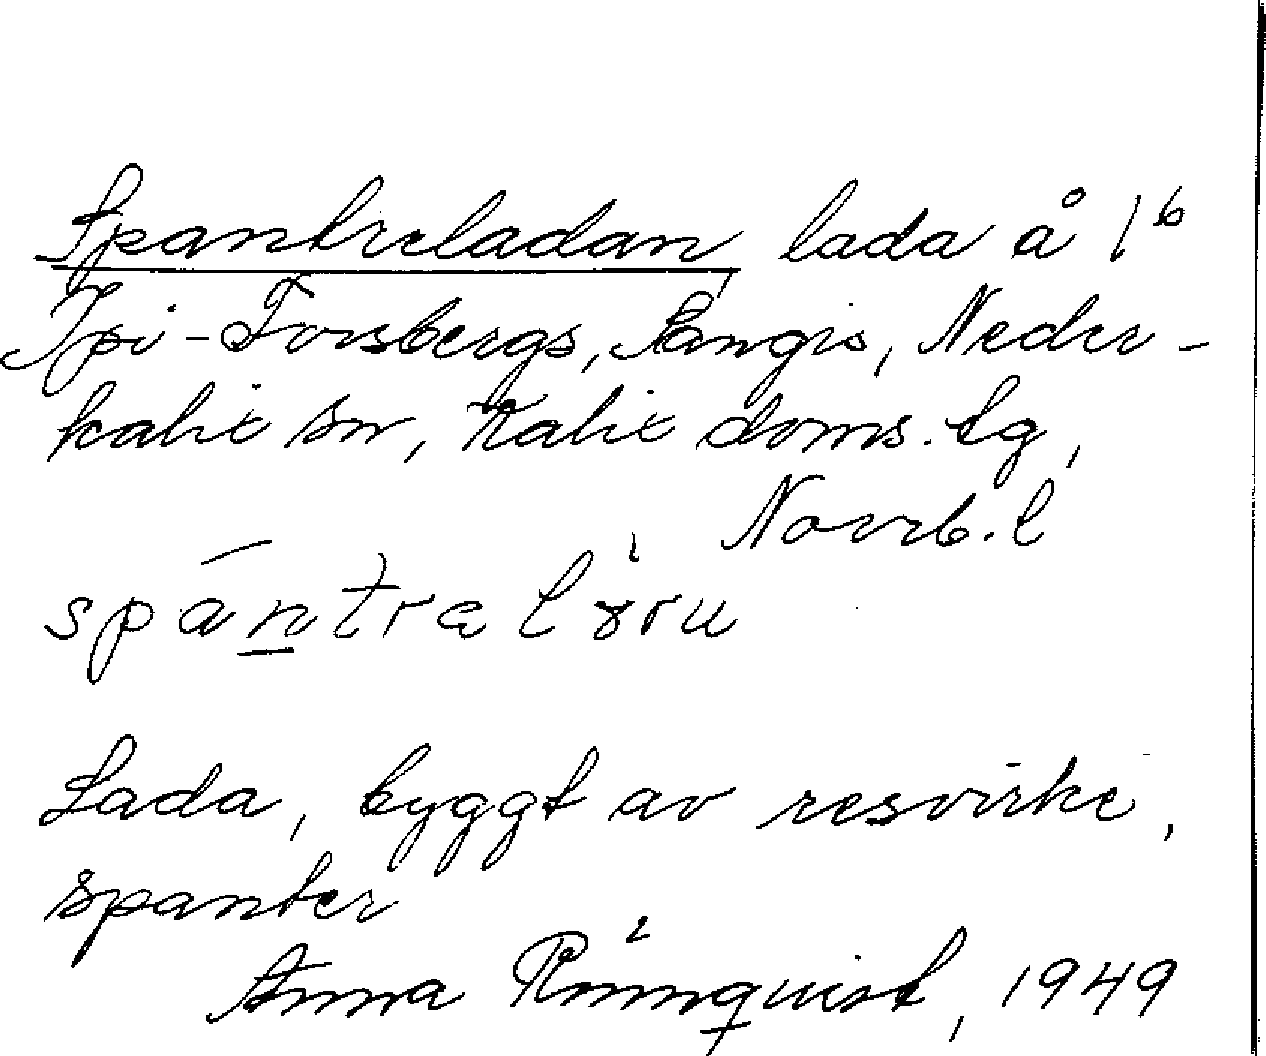 Spantreladan, lada å 1⁶
Spi-Forsbergs, Sangis, Neder-
kalix sn, Kalix doms. lg,
Norrb. l
spantrælòru
Lada, byggt av resvirke,
spanter
Anna Rönnquist, 1949